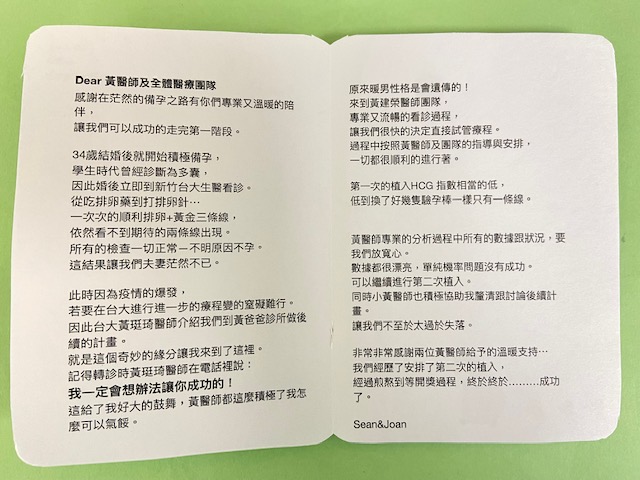 Dear 黃醫師及全體醫療團隊
感謝在茫然的備孕之路有你們專業又溫暖的陪
伴，
讓我們可以成功的走完第一階段。
34歲結婚後就開始積極備孕，
學生時代曾經診斷為多囊，
因此婚後立即到新竹台大生醫看診。
從吃排卵藥到打排卵針⋯
一次次的順利排卵+黃金三條線，
依然看不到期待的兩條線出現。
所有的檢查一切正常—不明原因不孕。
這結果讓我們夫妻茫然不已。
此時因為疫情的爆發，
若要在台大進行進一步的療程變的窒礙難行。
因此台大黃珽琦醫師介紹我們到黃爸爸診所做後
續的計畫。
就是這個奇妙的緣分讓我來到了這裡。
記得轉診時黃珽琦醫師在電話裡說：
我一定會想辦法讓你成功的！
這給了我好大的鼓舞，黃醫師都這麼積極了我怎
麼可以氣餒。
原來暖男性格是會遺傳的！
來到黃建榮醫師團隊，
專業又流暢的看診過程，
讓我們很快的決定直接試管療程。
過程中按照黃醫師及團隊的指導與安排，
一切都很順利的進行著。
第一次的植入HCG 指數相當的低，
低到換了好幾隻驗孕棒一樣只有一條線。
黃醫師專業的分析過程中所有的數據跟狀況，要
我們放寬心。
數據都很漂亮，單純機率問題沒有成功。
可以繼續進行第二次植入。
同時小黃醫師也積極協助我釐清跟討論後續計
畫。
讓我們不至於太過於失落。
非常非常感謝兩位黃醫師給予的溫暖支持⋯
我們經歷了安排了第二次的植入，
經過煎熬到等開獎過程，終於終於………成功
了。
Sean&Joan